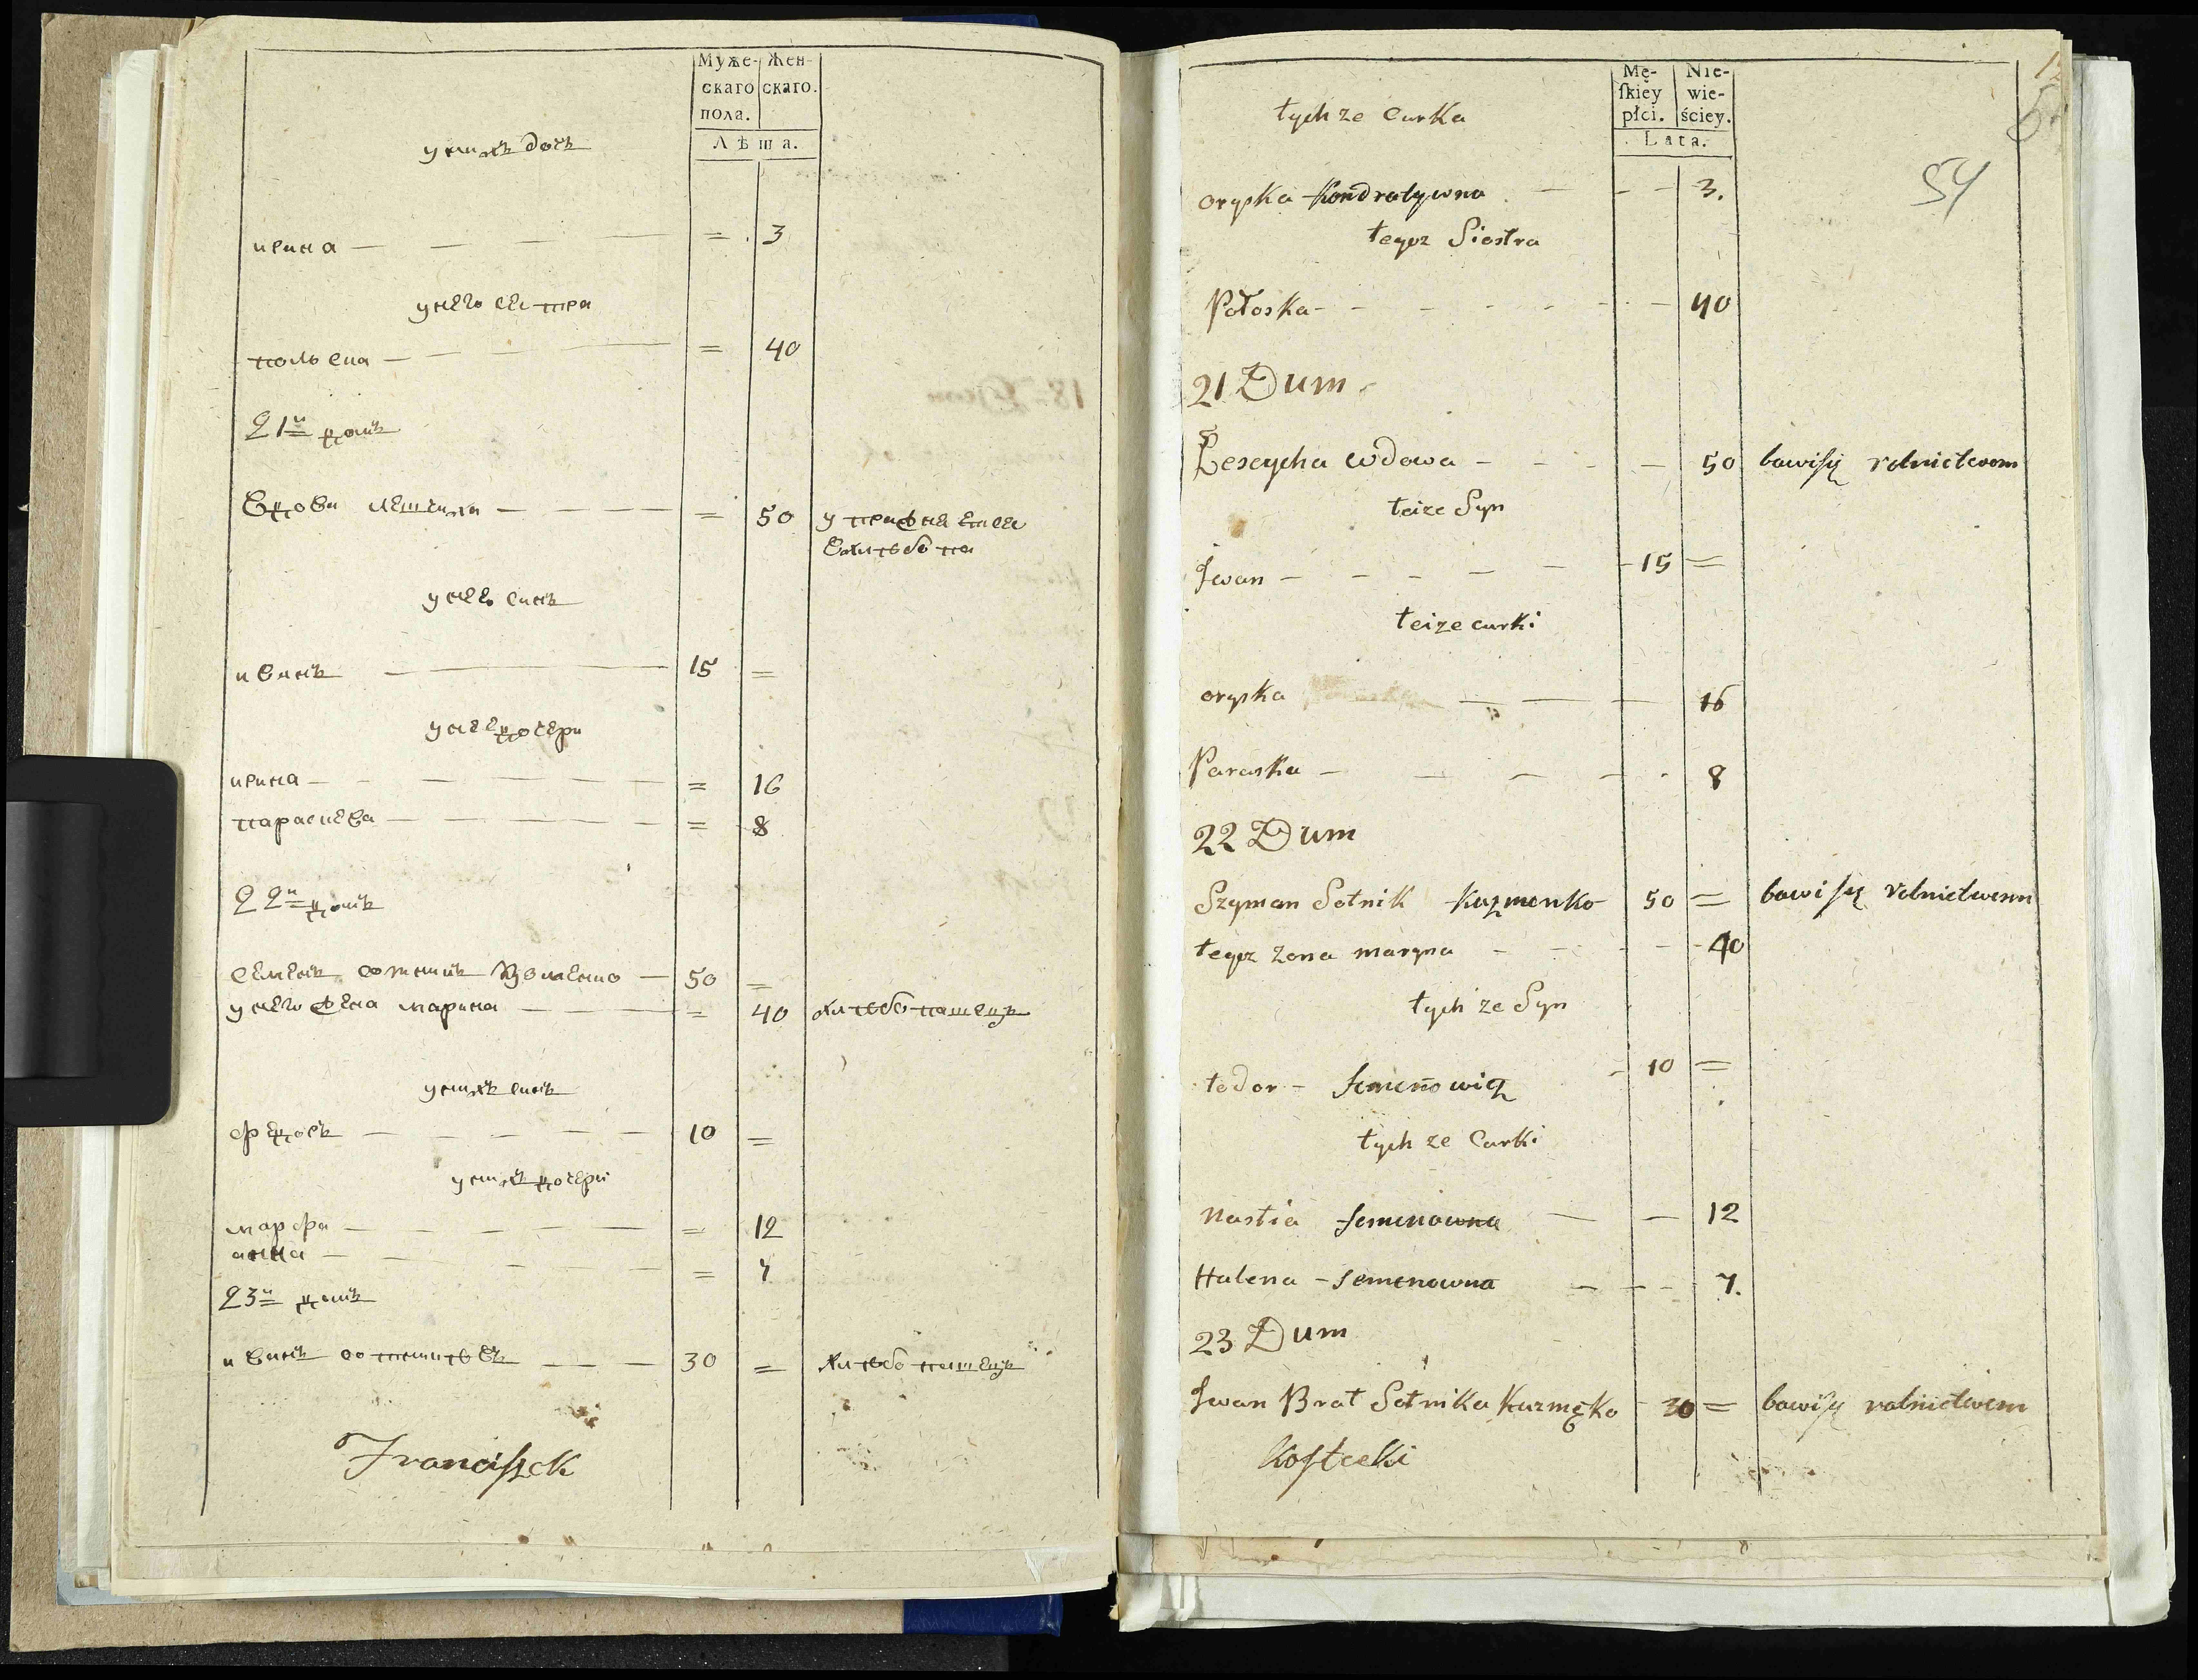 Муже-
скаго
пола.
Жен-
скаго.
Лѣта.
у нихъ дочь
ирина — — — — = . 3
у него сестра
польска — — — — = 40
21й домъ
вдова лещиха — — — — = 50 упражняется
у нее синъ
иванъ — 15 =
у нее дочери
ирина — — — — — = 16
параскева — — — — — = 8
22й домъ
семенъ сотникъ кузменко — 50 =
у него жена марина — — — = 40 хлебопашецъ
у нихъ синъ
федосъ — — — — — 10 =
у нихъ дочери
марфа — — — — — = 12
анна — — — — — = 7
23й домъ
иванъ сотниковъ — — — 30 = хлебопашецъ
Franciſzek
Mę-
ſkiey
płci.
Nie-
wie-
ściey.
Lata.
54
tych ze curka
oryska Kondratywna — — — 3.
tegoz Siostra
Połoska — — — — — — — 40
21 Dum
Leszczycha wdowa — — — — 50 bawiſię rolnictwem
teize Syn
Jwan — — — — — — 15 =
teize curki
oryska — — — 16
Paraska — — — — . 8
22 Dum
Szyman Sotnik Kuzmenko 50 = bawiſię rolnictwem
tegoz zona maryna — — — — 40
tych ze Syn
tedor — semenowicz — 10 =
tych ze Curki
Nastia semenowna — — 12
Halena — semenowna — — — 7.
23 Dum
Jwan Brat Sotnika Kuzmęko 30 = bawiſię rolnictwem
Koſtecki